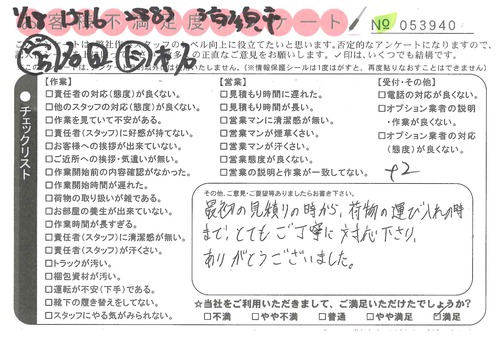 お客様不満足度アンケート
No 053940
このアンケートは、弊社作業スタッフのレベル向上に役立てたいと思います。否定的なアンケートになりますので、
多くの正直なご意見をお願いします。✓印は、いくつでも結構です。
(※情報保護シールは1度はがすと、再度貼りなおすことはできません)
チェックリスト
【作業】
□責任者の対応(態度)が良くない。
□他のスタッフの対応(態度)が良くない。
□作業を見ていて不安がある。
□責任者(スタッフ)に好感が持てない。
□お客様への挨拶が出来ていない。
□ご近所への挨拶・気遣いが無い。
□作業開始前の内容確認がなかった。
□作業開始時間が遅れた。
□荷物の取り扱いが雑である。
□お部屋の養生が出来ていない。
□作業時間が長すぎる。
□責任者(スタッフ)に清潔感が無い。
□責任者(スタッフ)が汗くさい。
□トラックが汚い。
□梱包資材が汚い。
□運転が不安(下手)である。
□靴下の履き替えをしてない。
□スタッフにやる気がみられない。
【営業】
□見積もり時間に遅れた。
□見積もり時間が長い。
□営業マンに清潔感が無い。
□営業マンが煙草くさい。
□営業マンが汗くさい。
□営業態度が良くない。
□営業の説明と作業が一致してない。
【受付・その他】
□電話の対応が良くない。
□オプション業者の説明
・作業が良くない。
□オプション業者の対応
(態度)が良くない。
+2
その他、ご意見・ご要望等ありましたらお書き下さい。
最初の見積りの時から、荷物の運び入れの時
まで、とてもご丁寧に対応下さり、
ありがとうございました。
☆当社をご利用いただきまして、ご満足いただけたでしょうか?
□不満 □やや不満 □普通 □やや満足 ☑満足